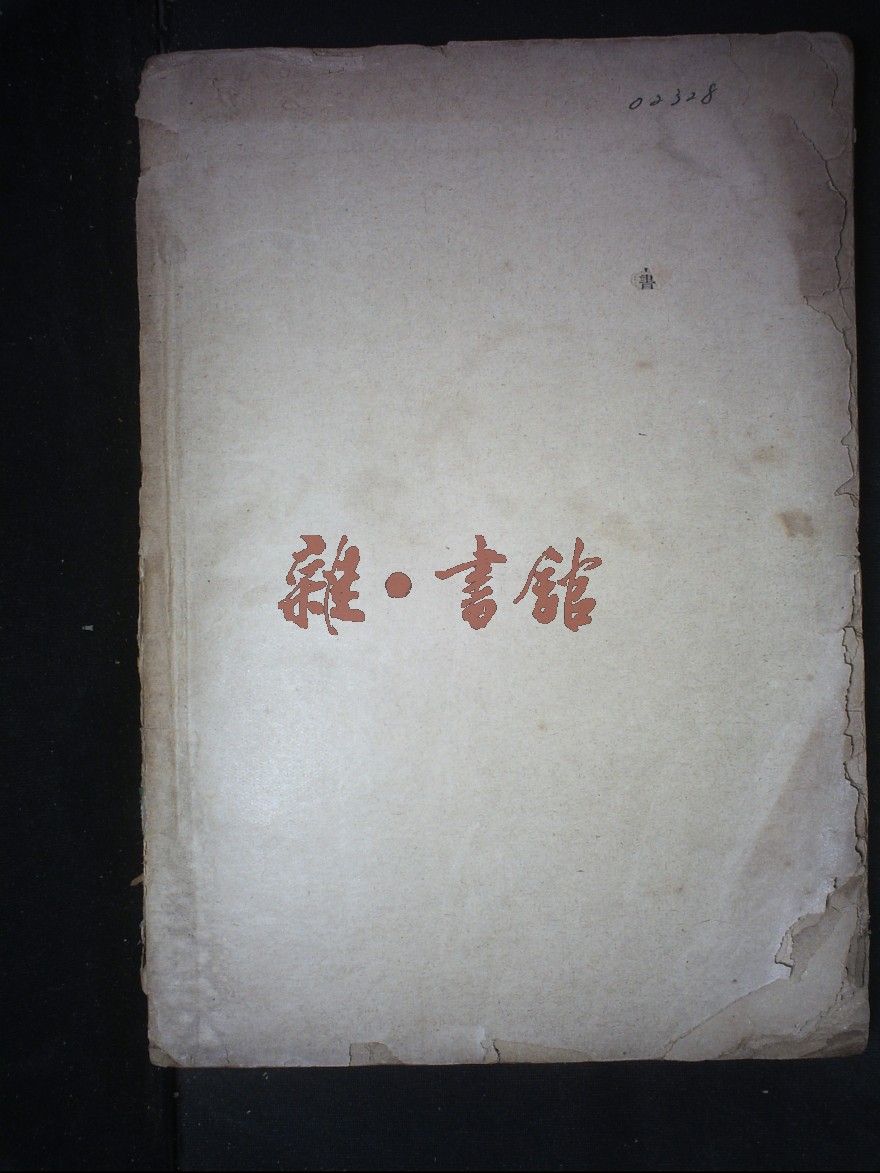 02328
書
雜·書館